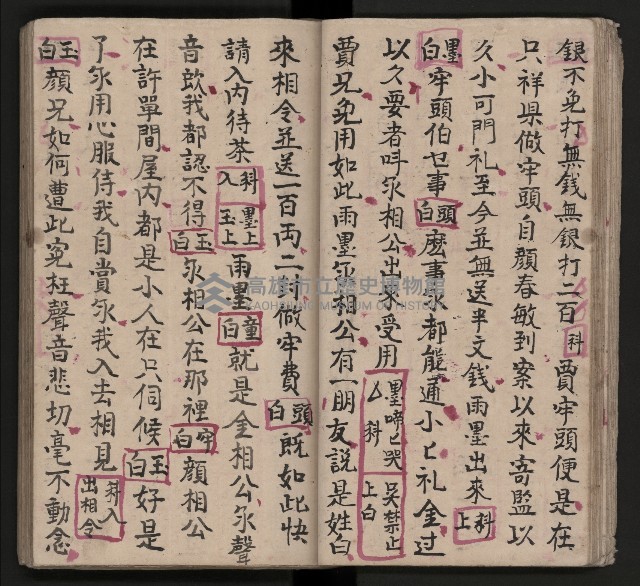 銀不免打無錢無銀打二百科賈牢頭便是在
只祥県做牢頭自顔春敏到案以來寄監以
久小可門礼至今並無送半文錢雨墨出來科上
墨白牢頭伯乜事頭白庅事尔都能通小匕礼金过
以久耍者呌尔相公出受用墨啼匕哭科吴禁止上白
賈兄免用如此雨墨尔相公有一朋友説是姓白
來相令並送一百両二財做牢費頭白既如此快
請入內待茶科入墨上玉上雨墨童白就是金相公尔聲
音欤我都認不得玉白尔相公在那裡牢白顔相公
在許單間屋内都是小人在只伺候玉白好是
了尔用心服侍我自賞尔我入去相見科入出相令
玉白顔兄如何遭此寃枉聲音悲切毫不動念
高雄市立歷史博物館
KAOHSIUNG MUSEUM OF HISTORY